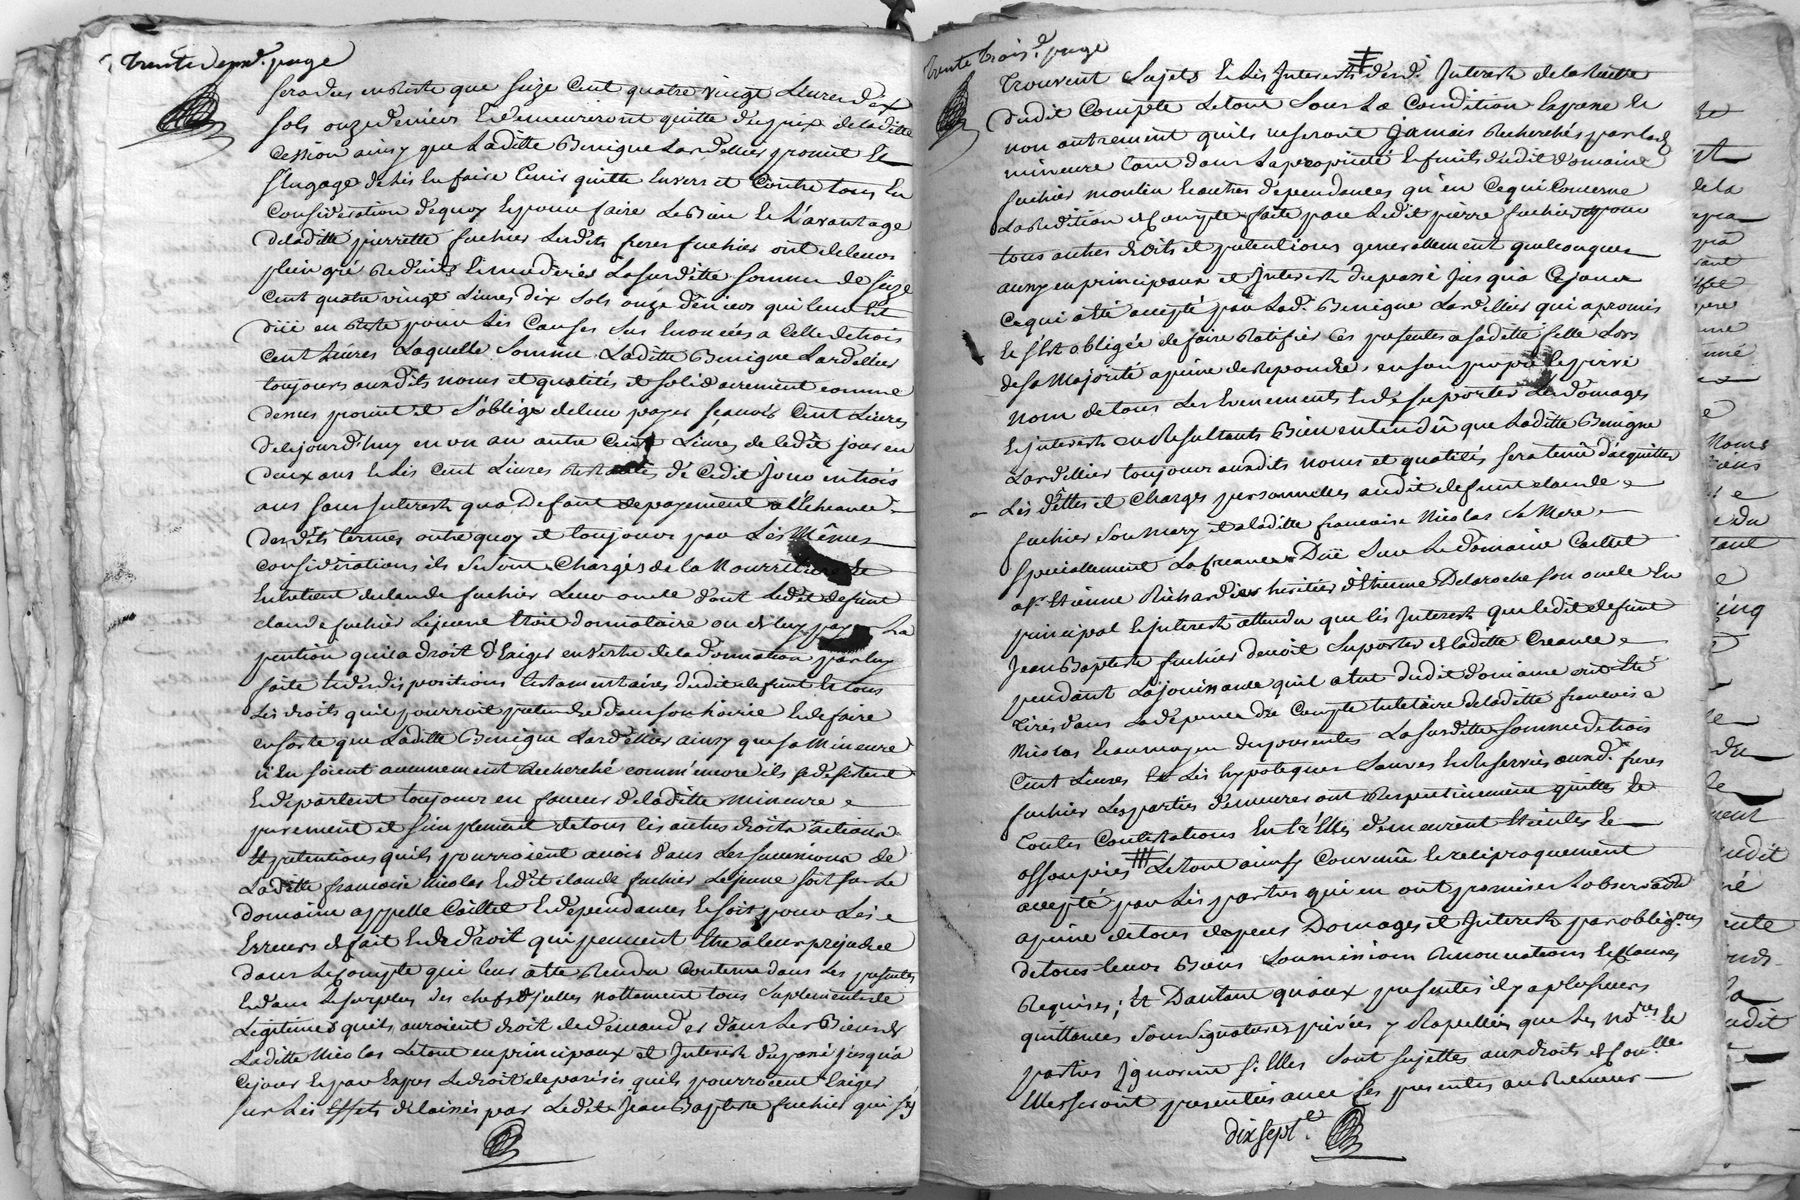 trente deux.e page
sera deu en Reste que seize Cent quatre vingt Livres dix
sols onze deniers Et demeureront quitte du prix de laditte
Cession ainsy que Laditte Benigne Lardellier promet Et
s'Engage de Les En faire tenir quitte Envers et Contre tous En
Consideration dequoy Et pour faire Le Bien Et L'avantage
de laditte pierrette fuchier Lesdits freres fuchier ont de leurs
plein gré Reduits Et moderés La susditte somme de seize
Cent quatre vingt Livres dix sols onze deniers qui leur Est
düe en Reste pour Les Causes sus Enoncées a Celle de trois
Cent Livres Laquelle somme Laditte Benigne Lardellier
toujours auxdits noms et qualités et solidairement comme
dessus promet et s'oblige de leur payer sçavoir Cent Livres
de cejourd'huy en un an autre Cent Livres de cedit jour en
deux ans et Les Cent Livres Restantes de Cedit Jour en trois
ans sans Interest qu'a Defaut de payement a l'Echeance
desdits termes outre quoy et toujours par Les Mêmes
considerations ils se sont Chargés de la Nourriture Et
Entretient de claude fuchier Leur oncle dont Ledit defunt
claude fuchier Lejeune Etoit donnataire ou de luy payer La
pention quil a droit d'Exiger en vertu de la donnation par luy
faite et des dispositions testamentaires dudit defunt Et tous
Les droits quil pourroit pretendre dans son hoirie Et de faire
en sorte que Laditte Benigne Lardellier ainsy que sa Mineure
n'En soient aucunement Recherché comm'encore ils se desistent
Et departent toujours en faveur de laditte mineure
purement et simplement de tous les autres droits actions
Et pretentions quils pourroient avoir dans Les successions de
Laditte francoise Nicolas Et dudit claude fuchier Lejeune soit sur Le
domaine appellé Caillet Et dependances Et soit pour Les
Erreurs de fait Et de droit qui peuvent Etre a leur prejudice
dans Le Compte qui leur a Eté Rendu Contenu dans Les presentes
Et dans Le surplus des chefs d'jcelles nottament tous suplements de
Legitimes quils auroient droit de demander dans Les Biens de
Laditte Nicolas Le tout en principaux et Interest du passé jusqu'a
Cejour Et par Expres Le droit de parisis quils pourroient Exiger
sur Les Effets delaissés par Ledit Jean Baptiste fuchier qui s'y
trente trois.e page
trouvent Sujets Et Les Interests desd. Interest de la Recette
dudit Compte Le tout sous La Condition Expresse Et
non autrement quils ne seront Jamais Recherchés par lad.
mineure tant dans La propriété Et fruits dudit domaine
fuchier moulin Et autres dependances qu'en Ce qui Concerne
La Redition de Compte faite par Ledit pierre fuchier Et pour
tous autres droits et pretentions generallement quelconques
aussy en principaux et Interest du passé Jusqu'a Cejour
Ce qui a Eté accepté par Lad. Benigne Lardellier qui a promis
Et s'Est obligée de faire Ratifier Ces presentes a saditte fille Lors
de sa Majorité a peine de Repondre, en son propre Et privé
Nom de tous Les Evenements Et de suporter Les Domages
Et jnterests En Resultants Bien entendû que Laditte Benigne
Lardellier toujours auxdits noms et qualités sera tenû d'acquitter
Les dettes et Charges personnelles audit defunt claude
fuchier Son mary et a laditte francoise Nicolas Sa Mere
Specialement La Creance Düe Sur Le domaine Caillet
a S.r Etienne Richardier heritier d'Etienne Delaroche son oncle En
principal Et jnterest attendu que les Interest que ledit defunt
Jean Baptiste fuchier devoit suporter de laditte Creance
pendant La jouissance quil a eue dudit domaine ont Eté
tirés dans La depence du Compte tutelaire de laditte francoise
Nicolas Et au moyen des presentes La susditte somme de trois
Cent Livres Et Les hypoteques sauves Et Reservées auxd. freres
fuchier Les parties demeureront Respectivement quittes Et
toutes Contestations Entr'Elles demeurent Eteintes Et
assoupies Le tout ainsy Convenû Et reciproquement
accepté par Les parties qui en ont promises L'observation
a peine de tous depens Domages et Interest par oblig.ons
de tous leurs Biens Soumissions Renonciations Et Clauses
Requises; Et Dautant qu'aux presentes il y a plusieurs
quittances Sous Signatures privées y Rapellées que Les No.res Et
parties Ignorent si Elles Sont sujettes aux droits de Con.lle
Elles seront presentées avec Les presentes au Receveur
dix sept.e